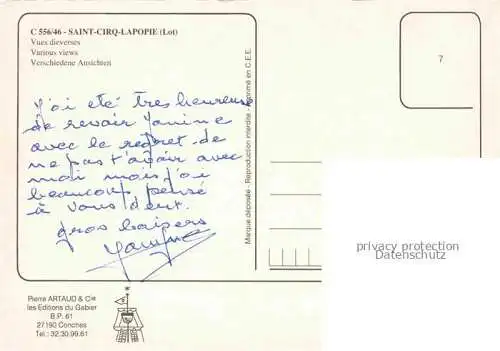 C 556/46 - SAINT-CIRQ-LAPOPIE (Lot)
Vues dieverses
Various views
Verschiedene Ansichten
7
J'ai eté très heureuse
de revoir Janine
avec le regret de
ne pas t'avoir avec
moi mais j'ai
beaucoup pensé
à vous deux.
gros baisers
Marque déposée - Reproduction interdite - Imprimé en C.E.E.
privacy protection
Datenschutz
Pierre ARTAUD & Cie
les Editions du Gabier
B.P. 61
27190 Conches
Tel.: 32.30.99.61